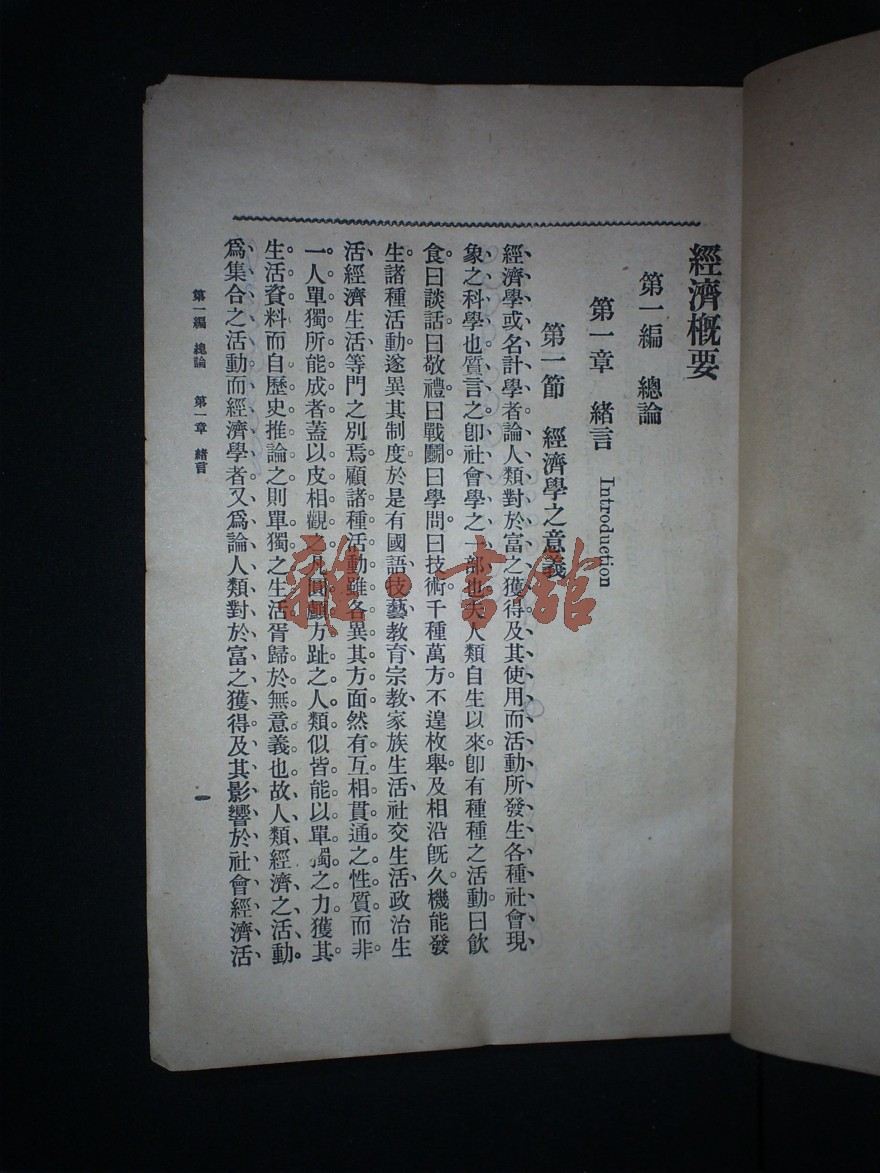 經濟概要
第一編　總論
第一章　緒言　Introduction
第一節　經濟學之意義
經濟學或名計學者論人類對於富之獲得及其使用而活動所發生各種社會現
象之科學也質言之卽社會學之一部也夫人類自生以來卽有種種之活動曰飲
食曰談話曰敬禮曰戰鬭曰學問曰技術千種萬方不遑枚舉及相沿旣久機能發
生諸種活動遂異其制度於是有國語技藝教育宗教家族生活社交生活政治生
活經濟生活等門之別焉顧諸種活動雖各異其方面然有互相貫通之性質而非
一人單獨所能成者蓋以皮相觀之凡圓顱方趾之人類似皆能以單獨之力獲其
生活資料而自歷史推論之則單獨之生活胥歸於無意義也故人類經濟之活動
爲集合之活動而經濟學者又爲論人類對於富之獲得及其影響於社會經濟活
第一編　總論　第一章　緒言
一
雜·書館